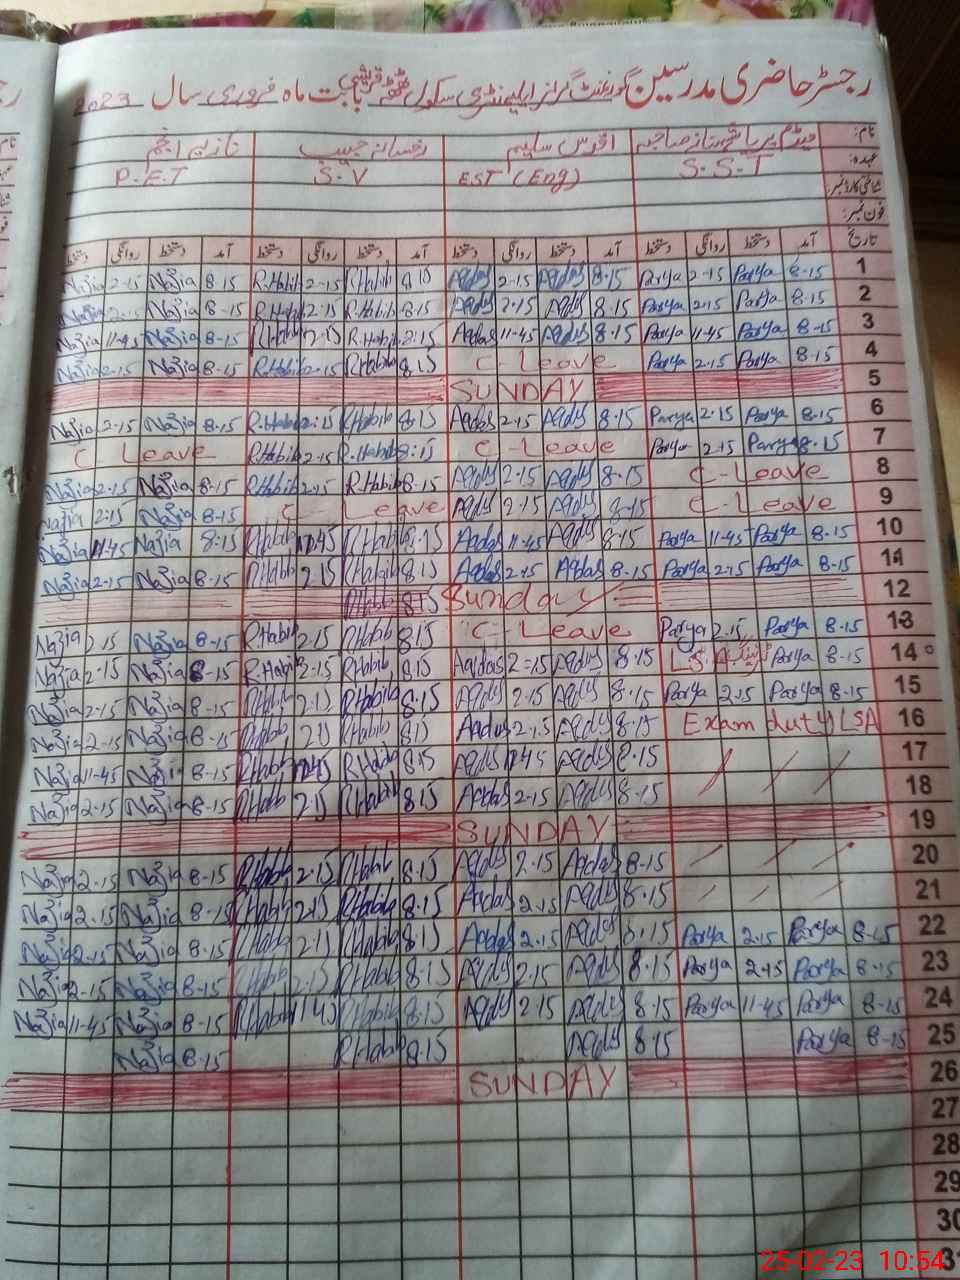 رجسٹر حاضری مدرسین گورنمنٹ گرلز ایلیمنٹری سکول ٹھٹھہ قریشی بابت ماہ فروری سال 2023
نام: میڈم پریا شہناز صاحبہ اقدس سلیم رخسانہ حبیب نازیہ انجم
عہدہ: S.S.T EST (Eng) S.V P.E.T
شناختی کارڈ نمبر:
فون نمبر:
تاریخ آمد دستخط روانگی دستخط آمد دستخط روانگی دستخط آمد دستخط روانگی دستخط آمد دستخط روانگی دستخط
Najia 2-15 Najia 8-15 R.Habib 2-15 R.Habib 8.10 Aqdas 2-15 Aqdas 8.15 Parya 2-15 Parya 8-15 1
Najia 2-15 Najia 8-15 R.Habib 2-15 R.Habib 8.15 Aqdas 2.15 Aqdas 8.15 Parya 2.15 Parya 8-15 2
Najia 11-45 Najia 8-15 R.Habib 2.15 R.Habib 2:15 Aqdas 11-45 Aqdas 8.15 Parya 11-45 Parya 8-15 3
Najia 2-15 Najia 8-15 R.Habib 2-15 R.Habib 8.15 C-Leave Parya 2.15 Parya 8-15 4
SUNDAY 5
Najia 2-15 Najia 8-15 R.Habib 2:15 R.Habib 8.15 Aqdas 2.15 Aqdas 8.15 Parya 2.15 Parya 8-15 6
C Leave R.Habib 2.15 R.Habib 8:15 C-Leave Parya 2.15 Parya 8.15 7
Najia 2-15 Najia 8-15 R.Habib 2.15 R.Habib 8.15 Aqdas 2.15 Aqdas 8.15 C-Leave 8
Najia 2-15 Najia 8-15 C- Leave Aqdas 2.15 Aqdas 8-15 C-Leave 9
Najia 11-45 Najia 8-15 R.Habib 11.45 R.Habib 8.15 Aqdas 11-45 Aqdas 8.15 Parya 11-45 Parya 8-15 10
Najia 2-15 Najia 8-15 R.Habib 2.15 R.Habib 8.15 Aqdas 2.15 Aqdas 8-15 Parya 2-15 Parya 8-15 11
R.Habib 8.15 Sunday 12
Najia 2.15 Najia 8-15 R.Habib 2.15 R.Habib 8.15 C-Leave Parya 2.15 Parya 8-15 13
Najia 2-15 Najia 8-15 R.Habib 2-15 R.Habib 8.15 Aqdas 2-15 Aqdas 8.15 L.S.A Parya 8-15 14
Najia 2-15 Najia 8-15 R.Habib 2.15 R.Habib 8.15 Aqdas 2.15 Aqdas 8.15 Parya 2.15 Parya 8-15 15
Najia 2-15 Najia 8-15 R.Habib 2.15 R.Habib 8.15 Aqdas 2-15 Aqdas 8-15 Exam duty LSA 16
Najia 11-45 Najia 8-15 R.Habib 11.45 R.Habib 8.15 Aqdas 11.45 Aqdas 8.15 17
Najia 2-15 Najia 8-15 R.Habib 2.15 R.Habib 8.15 Aqdas 2.15 Aqdas 8-15 18
SUNDAY 19
Najia 2-15 Najia 8-15 R.Habib 2-15 R.Habib 8.15 Aqdas 2.15 Aqdas 8-15 20
Najia 2-15 Najia 8-15 R.Habib 2.15 R.Habib 8.15 Aqdas 2.15 Aqdas 8.15 21
Najia 2-15 Najia 8-15 R.Habib 2.15 R.Habib 8.15 Aqdas 2.15 Aqdas 8.15 Parya 2.15 Parya 8-15 22
Najia 2-15 Najia 8-15 R.Habib 2.15 R.Habib 8.15 Aqdas 2.15 Aqdas 8.15 Parya 2.15 Parya 8-15 23
Najia 11-45 Najia 8-15 R.Habib 11.45 R.Habib 8.15 Aqdas 2.15 Aqdas 8.15 Parya 11-45 Parya 8-15 24
Najia 8-15 R.Habib 8.15 Aqdas 8.15 Parya 8-15 25
SUNDAY 26
27
28
29
30
31
25-02-23 10:54